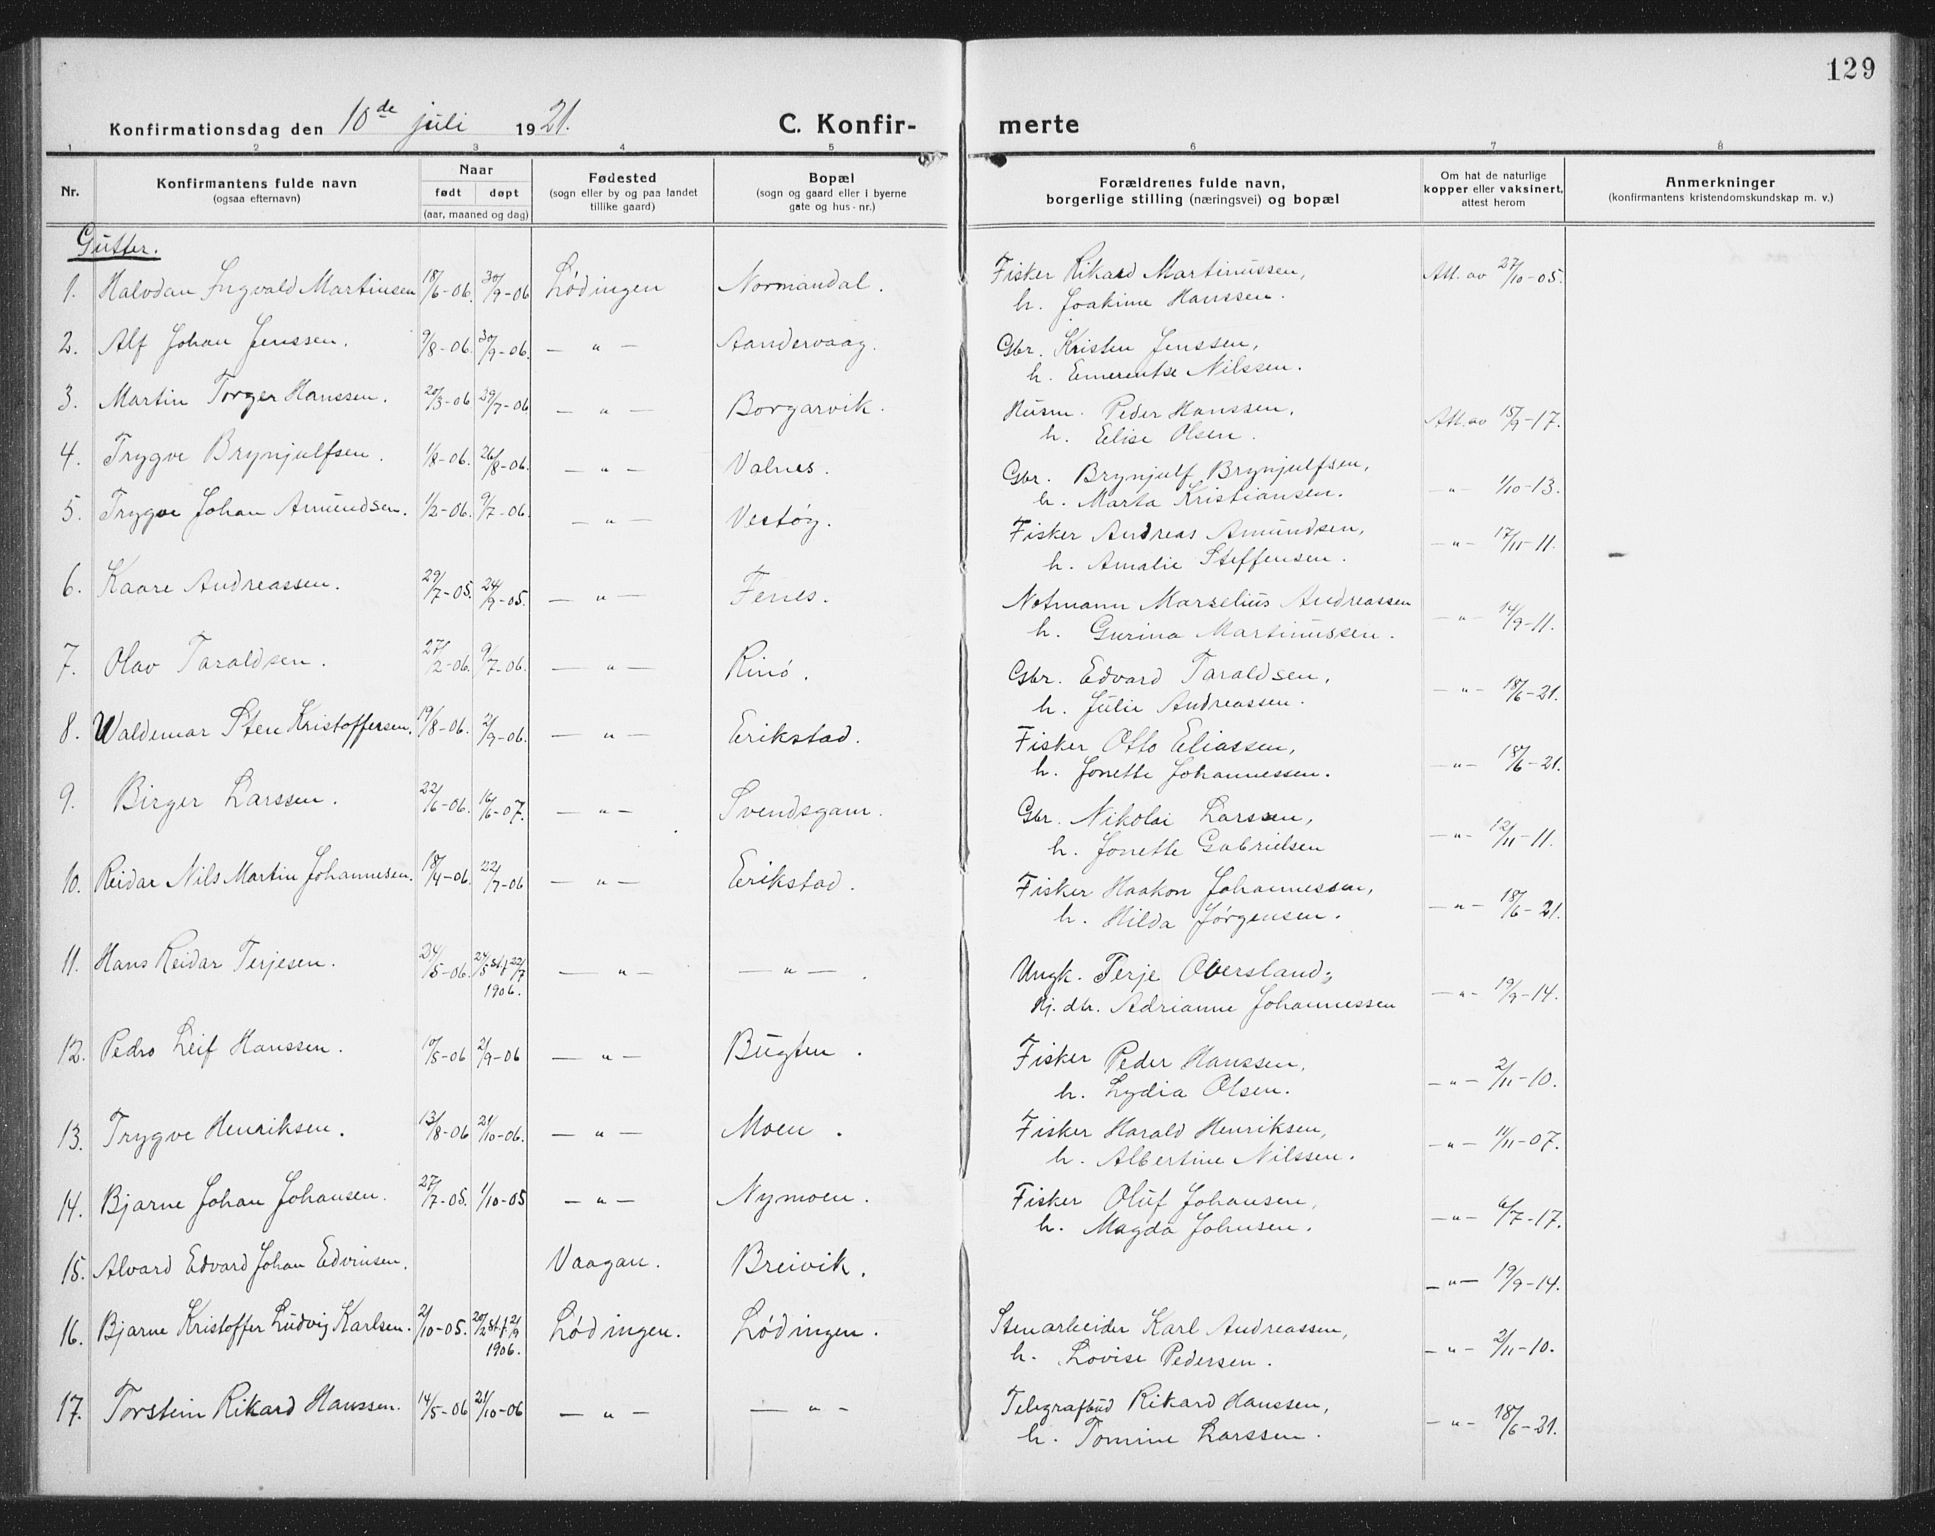 129
Konfirmationsdag den 10de juli 1921. C. Konfirmerte
1 2 3 4 5 6 7 8
Nr. Konfirmantens fulde navn (ogsaa efternavn) Naar født døpt (aar, maaned og dag) Fødested (sogn eller by og paa landet tillike gaard) Bopæl (sogn og gaard eller i byerne gate og hus-nr.) Forældrenes fulde navn, borgerlige stilling (næringsvei) og bopæl Om hat de naturlige kopper eller vaksinert, attest herom Anmerkninger (konfirmantens kristendomskundskap m. v.)
Gutter.
1. Halvdan Ingvald Martinsen 18/6-06. 30/9-06 Lødingen Normandal. Fisker Rikard Martinussen, Att. av 27/10-05.
h. Joakime Hanssen.
2. Alf Johan Jenssen. 9/8-06. 30/9-06. — " — Aandervaag. Gbr. Kristen Jenssen,
h. Emerentse Nilssen.
3. Martin Torger Hanssen. 20/3-06 29/7-06 — " — Borgarvik. Husm. Peder Hanssen, Att. av 15/9-17.
h. Elise Olsen.
4. Trygve Brynjulfsen. 1/8-06. 26/8-06. — " — Valnes. Gbr. Brynjulf Brynjulfsen, — " — 1/10-13.
h. Marta Kristiansen.
5. Trygve Johan Amundsen. 1/2-06. 9/7-06. — " — Vestøy. Fisker Andreas Amundsen, — " — 17/11-11.
h. Amalie Steffensen.
6. Kaare Andreassen. 29/7-05. 24/9-05. — " — Fenes. Notmann Marselius Andreassen — " — 14/9-11.
h. Gurina Martinussen.
7. Olav Taraldsen. 27/2-06. 9/7-06. — " — Rinø. Gbr. Edvard Taraldsen, — " — 18/6-21.
h. Julie Andreassen.
8. Waldemar Sten Kristoffersen. 19/8-06. 2/9-06. — " — Erikstad. Fisker Otto Eliassen, — " — 18/6-21.
h. Jonette Johannessen.
9. Birger Larssen. 22/6-06. 16/6-07. — " — Svendsgam. Gbr. Nikolai Larssen, — " — 12/11-11.
h. Jonette Gabrielsen
10. Reidar Nils Martin Johannesen. 18/4-06. 22/7-06 — " — Erikstad. Fisker Haakon Johannessen, — " — 18/6-21.
h. Hilda Jørgensen.
11. Hans Reidar Terjesen. 24/5-06. 24/5 st.f. 22/7 1906. — " — — " — . Ungk. Terje Oversland, — " — 19/9-14.
Pj. dtr. Adrianne Johannessen
12. Pedro Leif Hanssen. 10/5-06 2/9-06 — " — Bugten. Fisker Peder Hanssen, — " — 2/11-10.
h. Lydia Olsen.
13. Trygve Henriksen. 13/8-06 21/10-06. — " — Moen. Fisker Harald Henriksen, — " — 11/11-07.
h. Albertine Nilssen.
14. Bjarne Johan Johansen. 27/7-05. 1/10-05 — " — Nymoen. Fisker Oluf Johansen, — " — 6/7-17.
h. Magda Johnsen.
15. Alvard Edvard Johan Edvinsen. Vaagan. Breivik. — " — 19/9-14.
16. Bjarne Kristoffer Ludvig Karlsen. 2/10-05. 20/2 st.f. 2/9 1906. Lødingen. Lødingen. Stenarbeider Karl Andreassen, — " — 2/11-10.
h. Lovise Pedersen.
17. Torstein Rikard Hanssen. 14/5-06 21/10-06 — " — — " — Telegrafbud Rikard Hanssen, — " — 18/6-21.
h. Tomine Larssen.